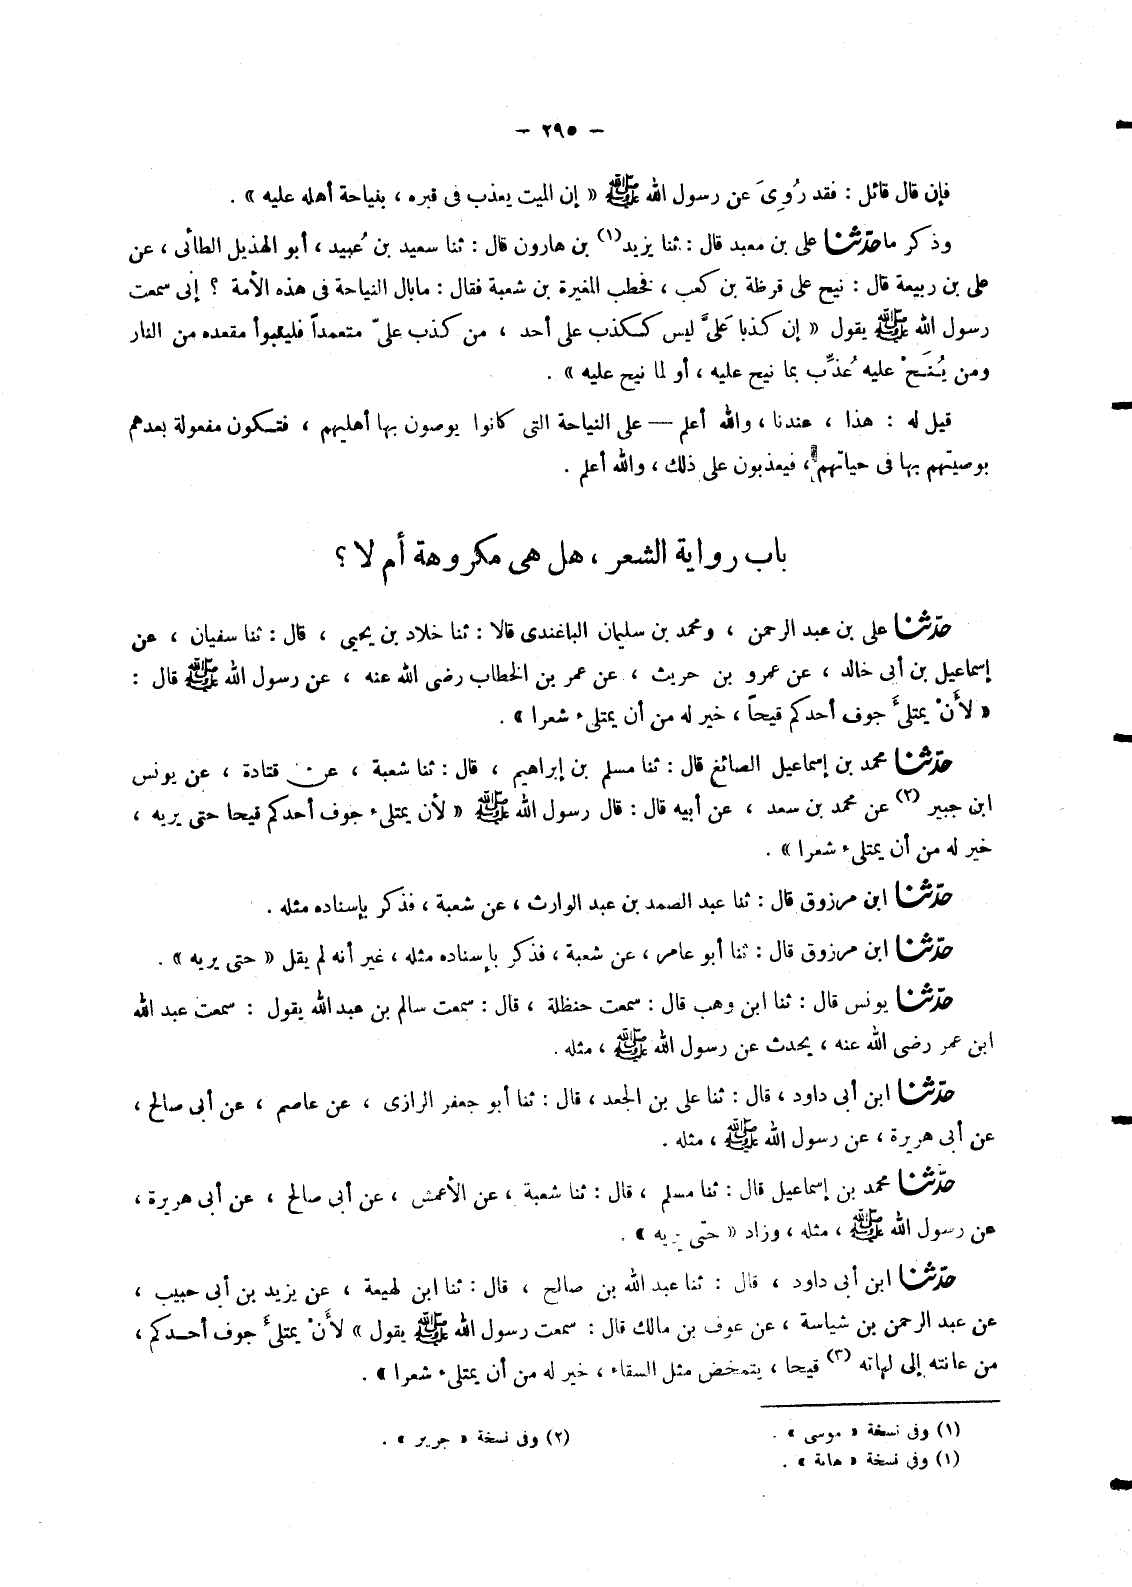 — ٢٩٥ —
فإن قال قائل : فقد رُوِىَ عن رسول الله ﷺ « إن الميت يعذب فى قبره ، بنياحة أهله عليه » .
وذكر ما حدّثنا على بن معبد قال : ثنا يزيد(١) بن هارون قال : ثنا سعيد بن عُبيد ، أبو الهذيل الطائى ، عن
على بن ربيعة قال : نيح على قرظة بن كعب ، فخطب المغيرة بن شعبة فقال : مابال النياحة فى هذه الأمة ؟ إنى سمعت
رسول الله ﷺ يقول « إن كذبا عَلىَّ ليس ككذب على أحد ، من كذب علىّ متعمداً فليتبوأ مقعده من النار
ومن يُنَحْ عليه عُذِّب بما نيح عليه ، أو لما نيح عليه » .
قيل له : هذا ، عندنا ، والله أعلم — على النياحة التى كانوا يوصون بها أهليهم ، فتكون مفعولة بعدهم
بوصيتهم بها فى حياتهم ، فيعذبون على ذلك ، والله أعلم .
باب رواية الشعر ، هل هى مكروهة أم لا ؟
حدّثنا على بن عبد الرحمن ، ومحمد بن سليمان الباغندى قالا : ثنا خلاد بن يحيى ، قال : ثنا سفيان ، عن
إسماعيل بن أبى خالد ، عن عمرو بن حريث ، عن عمر بن الخطاب رضى الله عنه ، عن رسول الله ﷺ قال :
« لأَنْ يمتلئَ جوف أحدكم قيحاً ، خير له من أن يمتلىء شعرا » .
حدّثنا محمد بن إسماعيل الصائغ قال : ثنا مسلم بن إبراهيم ، قال : ثنا شعبة ، عن قتادة ، عن يونس
ابن جبير (٢) عن محمد بن سعد ، عن أبيه قال : قال رسول الله ﷺ « لأن يمتلىء جوف أحدكم قيحا حتى يريه ،
خير له من أن يمتلىء شعرا » .
حدّثنا ابن مرزوق قال : ثنا عبد الصمد بن عبد الوارث ، عن شعبة ، فذكر بإسناده مثله .
حدّثنا ابن مرزوق قال : ثنا أبو عامر ، عن شعبة ، فذكر بإسناده مثله ، غير أنه لم يقل « حتى يريه » .
حدّثنا يونس قال : ثنا ابن وهب قال : سمعت حنظلة ، قال : سمعت سالم بن عبد الله يقول : سمعت عبد الله
ابن عمر رضى الله عنه ، يحدث عن رسول الله ﷺ ، مثله .
حدّثنا ابن أبى داود ، قال : ثنا على بن الجعد ، قال : ثنا أبو جعفر الرازى ، عن عاصم ، عن أبى صالح ،
عن أبى هريرة ، عن رسول الله ﷺ ، مثله .
حدّثنا محمد بن إسماعيل قال : ثنا مسلم ، قال : ثنا شعبة ، عن الأعمش ، عن أبى صالح ، عن أبى هريرة ،
عن رسول الله ﷺ ، مثله ، وزاد « حتّى يريه » .
حدّثنا ابن أبى داود ، قال : ثنا عبد الله بن صالح ، قال : ثنا ابن لهيعة ، عن يزيد بن أبى حبيب ،
عن عبد الرحمن بن شياسة ، عن عوف بن مالك قال : سمعت رسول الله ﷺ يقول » لأَنْ يمتلئَ جوف أحدكم ،
من عانته إلى لهاته (٣) قيحا ، يتمخض مثل السقاء ، خير له من أن يمتلىء شعرا » .
(١) وفى نسخة « موسى » .
(٢) وفى نسخة « جرير » .
(١) وفى نسخة « هامة » .